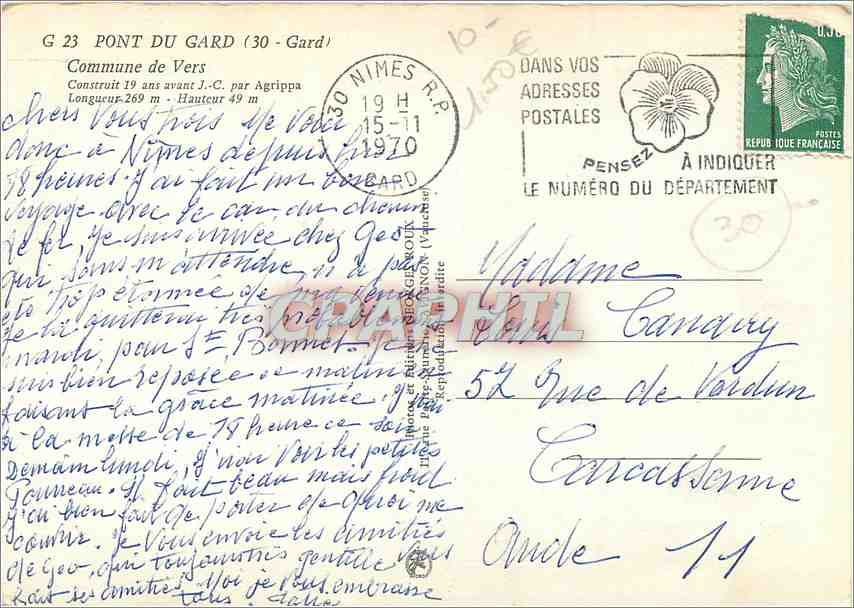 G 23 PONT DU GARD (30 - Gard)
Commune de Vers
Construit 19 ans avant J.-C. par Agrippa
Longueur 269 m - Hauteur 49 m
Chers Vous trois Me voici
donc à Nîmes depuis hier
18 heures. J'ai fait un bon
voyage avec le car du chemin
de fer, je suis arrivée chez Geo
qui, sans m'attendre, n'a pas
été trop étonnée de ma venue
Je la quitterai très probablement
mardi, pour St Bonnet. Je me
suis bien reposée ce matin
faisant la grâce matinée. J'irai
à la messe de 18 heures ce soir
Demain lundi, j'irai voir les petites
Il fait beau mais froid
J'ai bien fait de porter de quoi me
couvrir. Je vous envoie les amitiés
de Geo, qui toujours très gentille vous
fait ses amitiés Moi je vous embrasse
tous.
30 NIMES R.P.
19 H
15-11
1970
GARD
10-
1.50€
DANS VOS
ADRESSES
POSTALES
PENSEZ
À INDIQUER
LE NUMÉRO DU DÉPARTEMENT
0,30
POSTES
REPUBLIQUE FRANÇAISE
30
Photos et Editions GEORGES ROUX
AVIGNON (Vaucluse)
Reproduction interdite
CPAPHIL
Madame
Candry
52 Rue de Verdun
Carcassonne
Aude 11